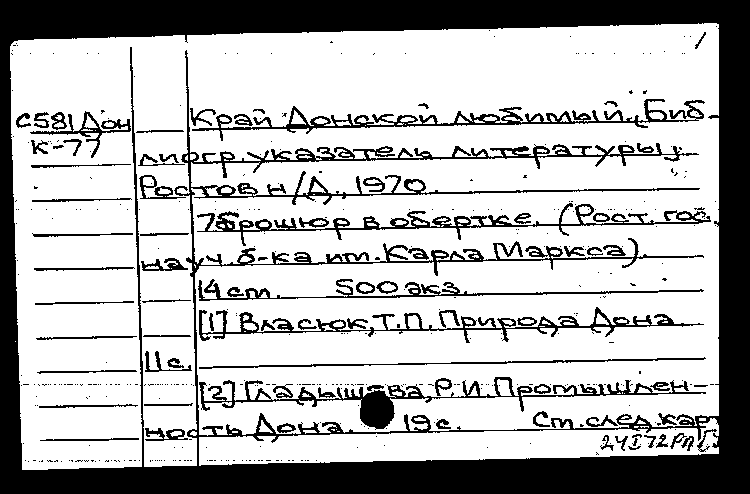 1
С581Дон Край Донской любимый. [Биб-
К-77
лиогр. указатель литературы].
Ростов н/Д., 1970.
7 брошюр в обертке. (Рост. гос.
науч. б-ка им. Карла Маркса).
14 см. 500 экз.
[1] Власюк, Т.П. Природа Дона.
11 с.
[2] Гладышева, Р.И. Промышлен-
ность Дона. 19 с. См. след. карт
24 I 72 РП